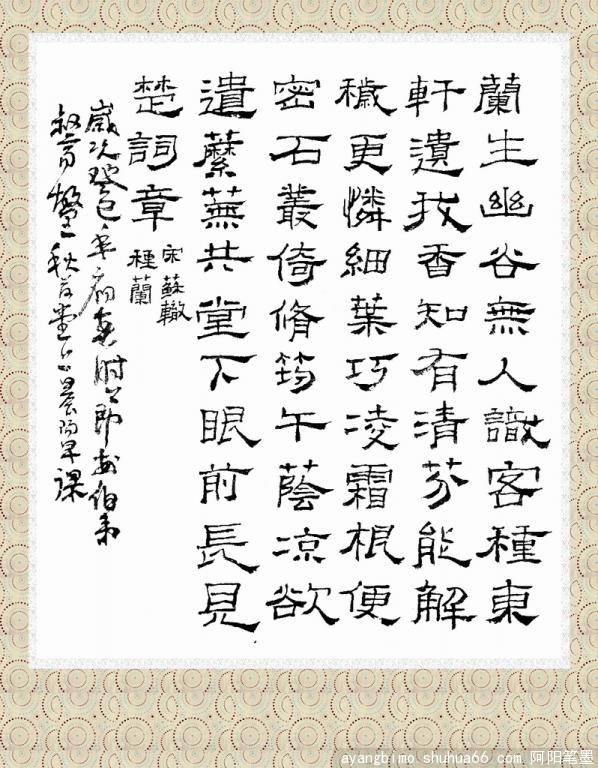 蘭生幽谷無人識客種東
軒遺我香知有清芬能解
穢更憐細葉巧凌霜根便
密石叢倚脩筠午蔭凉欲
遺蘪蕪共堂下眼前長見
楚詞章
宋蘇轍
種蘭
歲次癸巳年
晨 早課
ayangbimo.shuhua66.com 阿阳笔墨